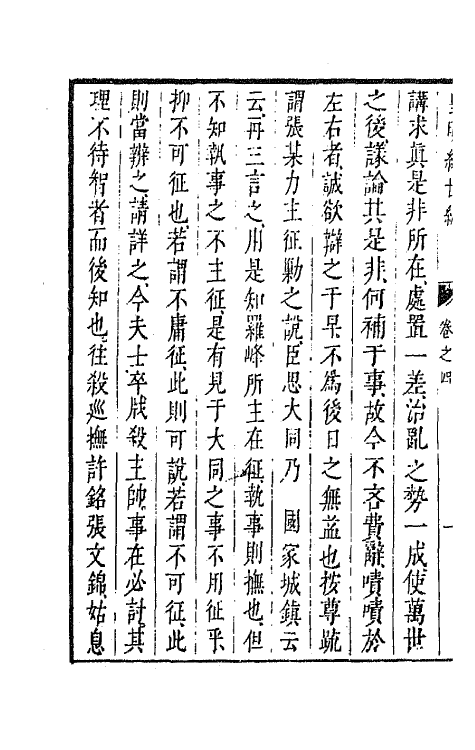 講求眞是非所在處置一差治亂之勢一成使萬世
之後議論其是非何補于事故今不吝費辭嘖嘖於
左右者誠欲辯之于早不爲後日之無益也按尊疏
謂張某力主征勦之說臣思大同乃　國家城鎮云
云再三言之用是知羅峰所主在征執事則撫也但
不知執事之不主征是有見于大同之事不用征乎
抑不可征也若謂不庸征此則可說若謂不可征此
則當辨之請詳之今夫士卒戕殺主帥事在必討其
理不待智者而後知也往殺巡撫許銘張文錦姑息
卷之四